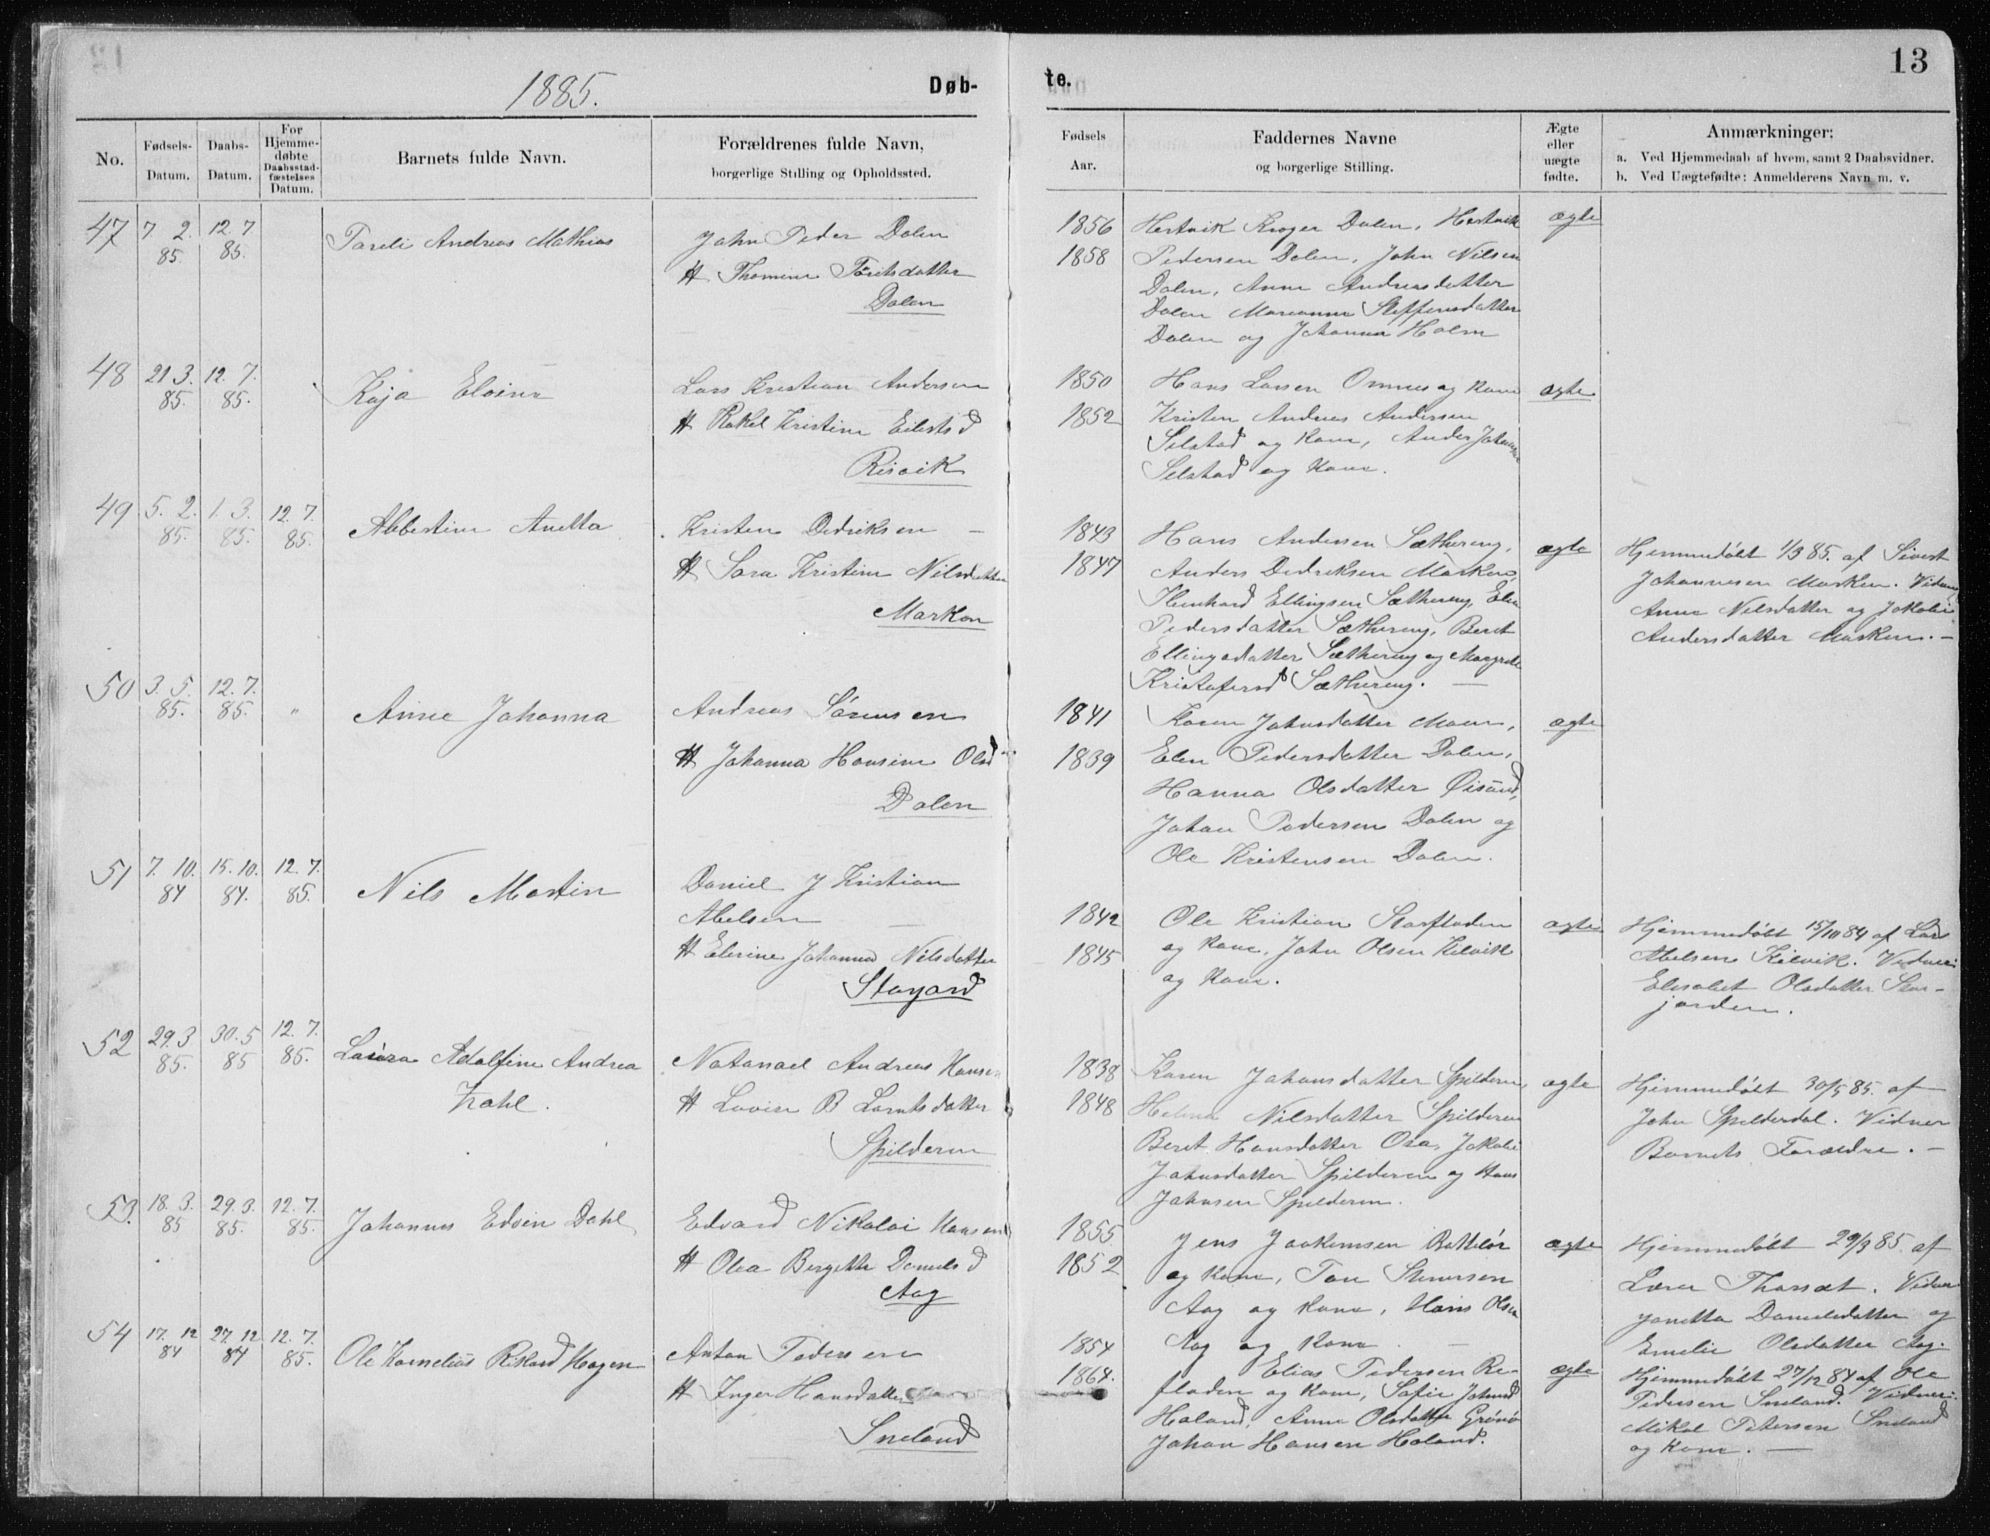 13
1885.
Døb-
te.
No.
Fødsels-
Datum.
Daabs-
Datum.
For
Hjemme-
døbte
Daabsstad-
fæstelses
Datum.
Barnets fulde Navn.
Forældrenes fulde Navn,
borgerlige Stilling og Opholdssted.
Fødsels
Aar.
Faddernes Navne
og borgerlige Stilling.
Ægte
eller
uægte
fødte.
Anmærkninger:
a. Ved Hjemmedaab af hvem, samt 2 Daabsvidner.
b. Ved Uægtefødte: Anmelderens Navn m. v.
47
7. 2.
85.
12. 7.
85.
Andreas Mathias
John Peder Dalen
H Thomine
Dalen
1856
1858
Hartvik Kroger Dalen, Hartvik
Pedersen Dalen, John Nilsen
Dalen, Anne Andreasdatter
Dalen Marianna Steffensdatter
Dalen og Johanna Holm
ægte
48
21 3.
85.
12. 7.
85.
Kaja Elvine
Lars Kristian Andersen
H Rakel Kristine Eilertsd
Risvik
1850
1852
Hans Larsen Omnes og Kone
Kristen Andreas Andersen
Selstad og Kone, Anders Johannsen
Selstad og Kone.
ægte
49
5. 2.
85.
1. 3.
85.
12. 7.
85.
Albertine Anetta
Kristen Dedriksen —
H Sara Kristine Nilsdatter
Marken
1843
1847
Hans Andersen Sæthereng,
Anders Dedriksen Marken,
Ellingsen Sæthereng, Elen
Pedersdatter Sæthereng, Beret
Ellingsdatter Sæthereng og Margrete
Kristofersd Sæthereng. —
ægte
Hjemmedøbt 1/3 85. af Sivert
Johannesen Marken. Vidner
Anne Nilsdatter og Jakobie
Andersdatter Marken. —
50
3. 5.
85.
12. 7.
85.
"
Anne Johanna
Andreas Sørensen
H Johanna Hansine Olsd
Dalen
1841
1839
Karen Johnsdatter Moen,
Elen Pedersdatter Dalen,
Hanna Olsdatter Øisund,
Johan Pedersen Dalen og
Ole Kristensen Dalen.
ægte
51
7. 10.
84
15. 10.
84.
12. 7.
85.
Nils Martin
Daniel J Kristian
Abelsen
H Elerine Johanna Nilsdatter
Storjord
1842
1845
Ole Kristian Storfladen
og Kone, John Olsen Kilvik
og Kone.
ægte
Hjemmedøbt 15/10 84 af Lars
Abelsen Kilvik. Vidner:
Elisabet Olsdatter Stor-
jorden.
52
29. 3
85.
30. 5
85
12. 7.
85.
Laura Adolfine Andrea
Zahl.
Natanael Andreas Hansen
H Lovise B Larntsdatter
Spilderen
1838
1848
Karen Johansdatter Spilderen,
Helena Nilsdatter Spilderen
Beret Hansdatter Osa, Jakobie
Johnsdatter Spilderen og Hans
Johnsen Spilderen.
ægte
Hjemmedøbt 30/5 85. af
John Spilderdal. Vidner
Barnets Forældre. —
53.
18. 3.
85
29. 3.
85.
12. 7.
85.
Johannes Edvin Dahl
Edvard Nikolai Hansen
H Olea Bergitte Danielsd
Aag
1855
1852
Jens Joakimsen
og Kone, Ton Stenersen
Aag og Kone, Hans Olsen
Aag og Kone —
ægte
Hjemmedøbt 29/3 85. af
Lærer Thorsæt. Vidner
Janetta Danielsdatter og
Emelie Olsdatter Aag.
54
17. 12
84
27. 12
84
12. 7.
85.
Ole Kornelius Rikard Hagen
Anton Pedersen
H Inger Hansdatter
Sneland
1854
1864.
Elias Pedersen Re-
fladen og Kone, Sofie Johnsd
Haland, Anne Olsdatter Grønø
Johan Hansen Haland.
ægte
Hjemmedøbt 27/12 84 af Ole
Pedersen Sneland. Vidner:
Mikal Petersen Sneland
og Kone. —